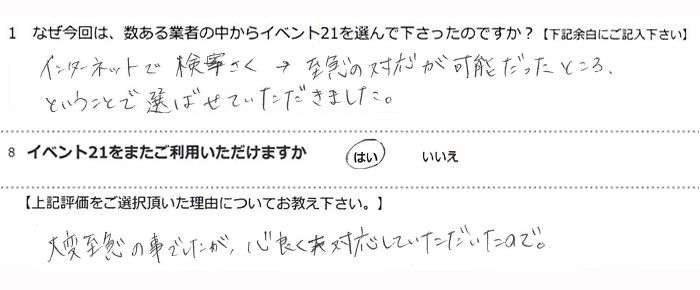 1 なぜ今回は、数ある業者の中からイベント21を選んで下さったのですか？【下記余白にご記入下さい】
インターネットで 検索さく → 至急の対応が可能だったところ、
ということで選ばせていただきました。
8 イベント21をまたご利用いただけますか はい いいえ
【上記評価をご選択頂いた理由についてお教え下さい。】
大変至急の事でしたが、心良く対応していただいたので。